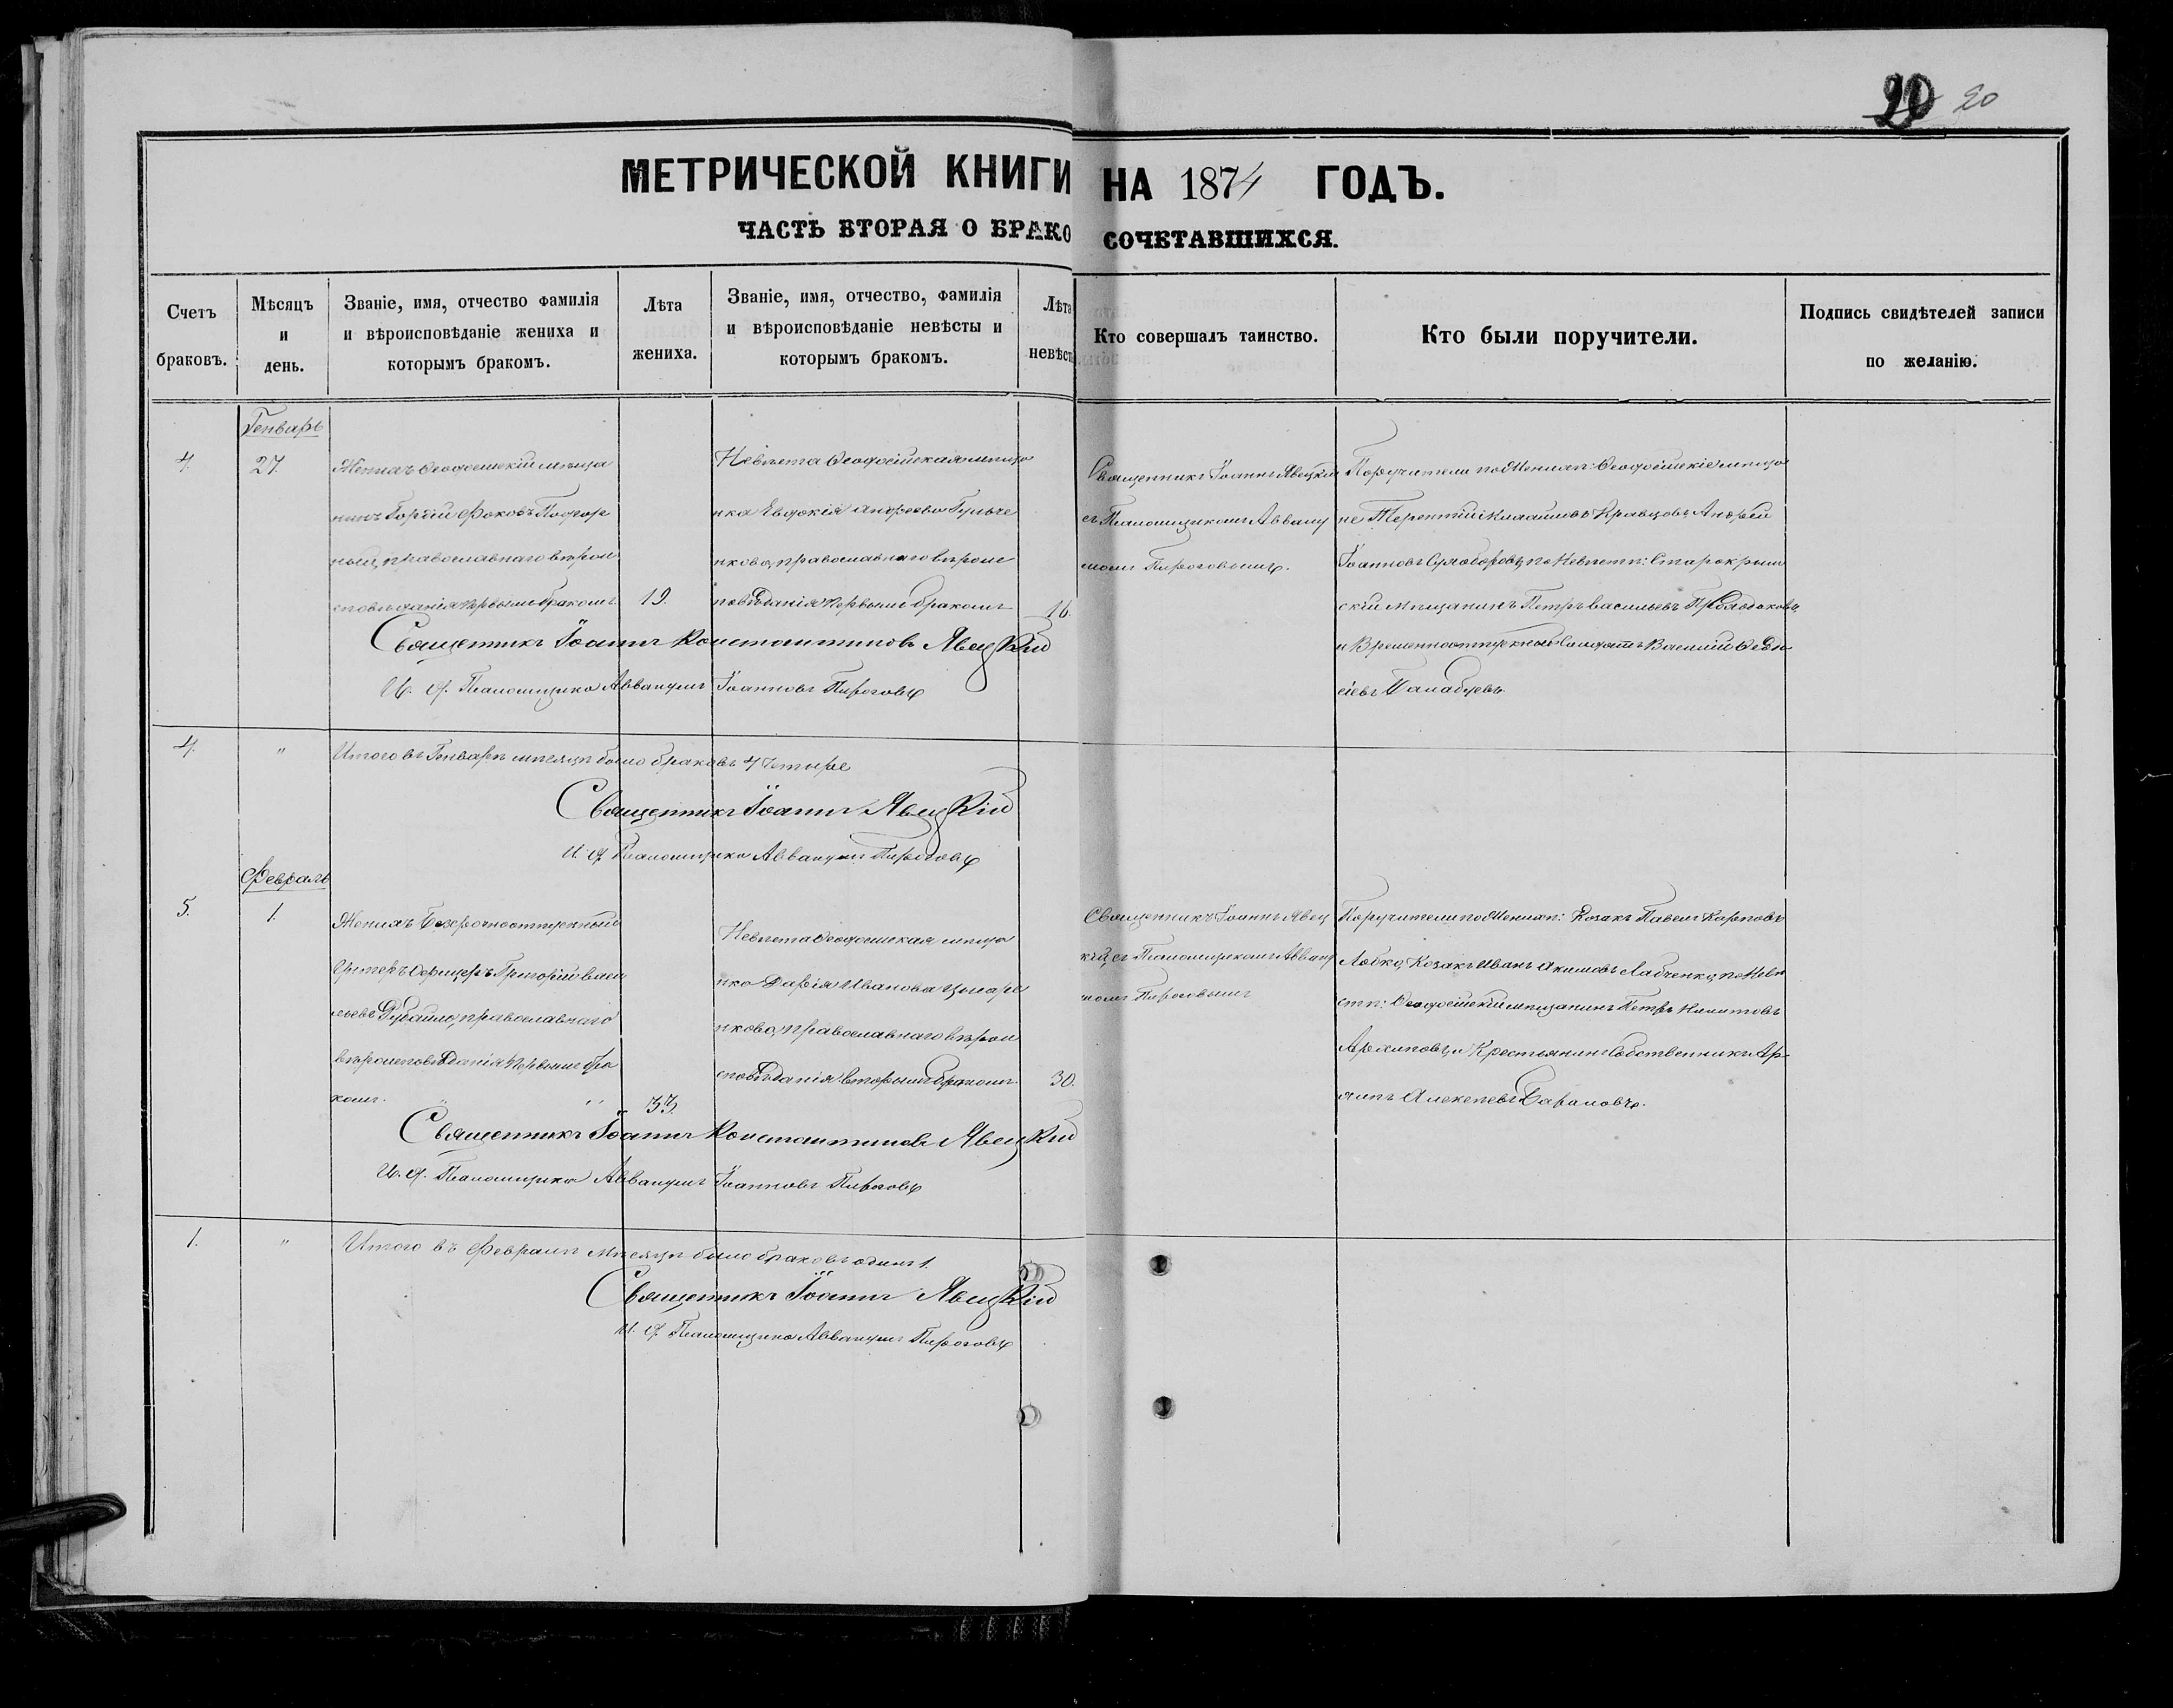 20 20
МЕТРИЧЕСКОЙ КНИГИ НА 1874 ГОДЪ.
ЧАСТЬ ВТОРАЯ О БРАКОСОЧЕТАВШИХСЯ.
Счетъ браковъ.
Мѣсяцъ и день.
Званіе, имя, отчество фамилія
и вѣроисповѣданіе жениха и
которымъ бракомъ.
Лѣта
жениха.
Званіе, имя, отчество, фамилія
и вѣроисповѣданіе невѣсты и
которымъ бракомъ.
Лѣта
невѣст
Кто совершалъ таинство.
Кто были поручители.
Подпись свидѣтелей записи
по желанію.
Генварь
4. 27.
Женихъ Ѳеодосійскій мѣща
нинъ
ный, православнаго вѣрои
сповѣданія первымъ бракомъ.
19.
Невѣста Ѳеодосійская мѣща
нка Евдокія Андреева Гульче
нкова, православнаго вѣроис
повѣданія первымъ бракомъ
16.
Священникъ Іоаннъ Явецкій
съ Псаломщикомъ Авваку
момъ Пироговымъ.
Поручители по Женихѣ: Ѳеодосійскіе мѣща
не Терентій Кравцовъ, Андрей
Іоанновъ по Невѣстѣ: Старокрым
скій мѣщанинъ Петръ Васильевъ
и Временноотпускной Солдатъ Василій
Священникъ Іоаннъ Константиновъ Явецкій
И. д. Псаломщика Аввакумъ Іоанновъ Пироговъ
4. " Итого въ Генварѣ мѣсяцѣ было браковъ 4 четыре
Священникъ Іоаннъ Явецкій
И. д. Псаломщика Аввакумъ Пироговъ
Февраль
5. 1.
Женихъ Безсрочноотпускный
Унтеръ Офицеръ Григорій Васи
льевъ православнаго
вѣроисповѣданія первымъ бра
комъ. " " 33.
Невѣста Ѳеодосійская мѣща
нка Дарія Иванова
нкова, православнаго вѣрои
сповѣданія вторымъ бракомъ.
30.
Священникъ Іоаннъ Явец
кій, съ Псаломщикомъ Авваку
момъ Пироговымъ
Поручители по Женихѣ: Козакъ Павелъ Карповъ
Лобко, Козакъ Иванъ Акимовъ Лабченко, по Невѣ
стѣ: Ѳеодосійскій мѣщанинъ Петръ
Архиповъ, и Крестьянинъ Собственникъ Ар
Алексѣевъ
Священникъ Іоаннъ Константиновъ Явецкій
И. д. Псаломщика Аввакумъ Іоанновъ Пироговъ
1. " Итого въ Февралѣ мѣсяцѣ было браковъ одинъ 1.
Священникъ Іоаннъ Явецкій
И. д. Псаломщика Аввакумъ Пироговъ